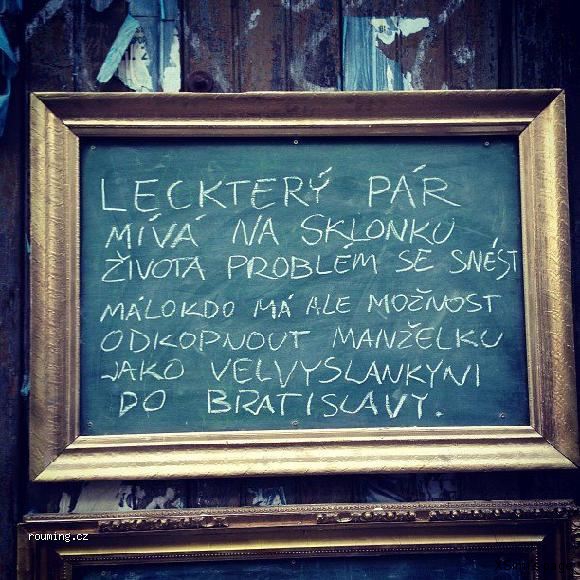 LECKTERÝ PÁR
MÍVÁ NA SKLONKU
ŽIVOTA PROBLÉM SE SNÉST
MÁLOKDO MÁ ALE MOŽNOST
ODKOPNOUT MANŽELKU
JAKO VELVYSLANKYNI
DO BRATISLAVY.
rouming.cz